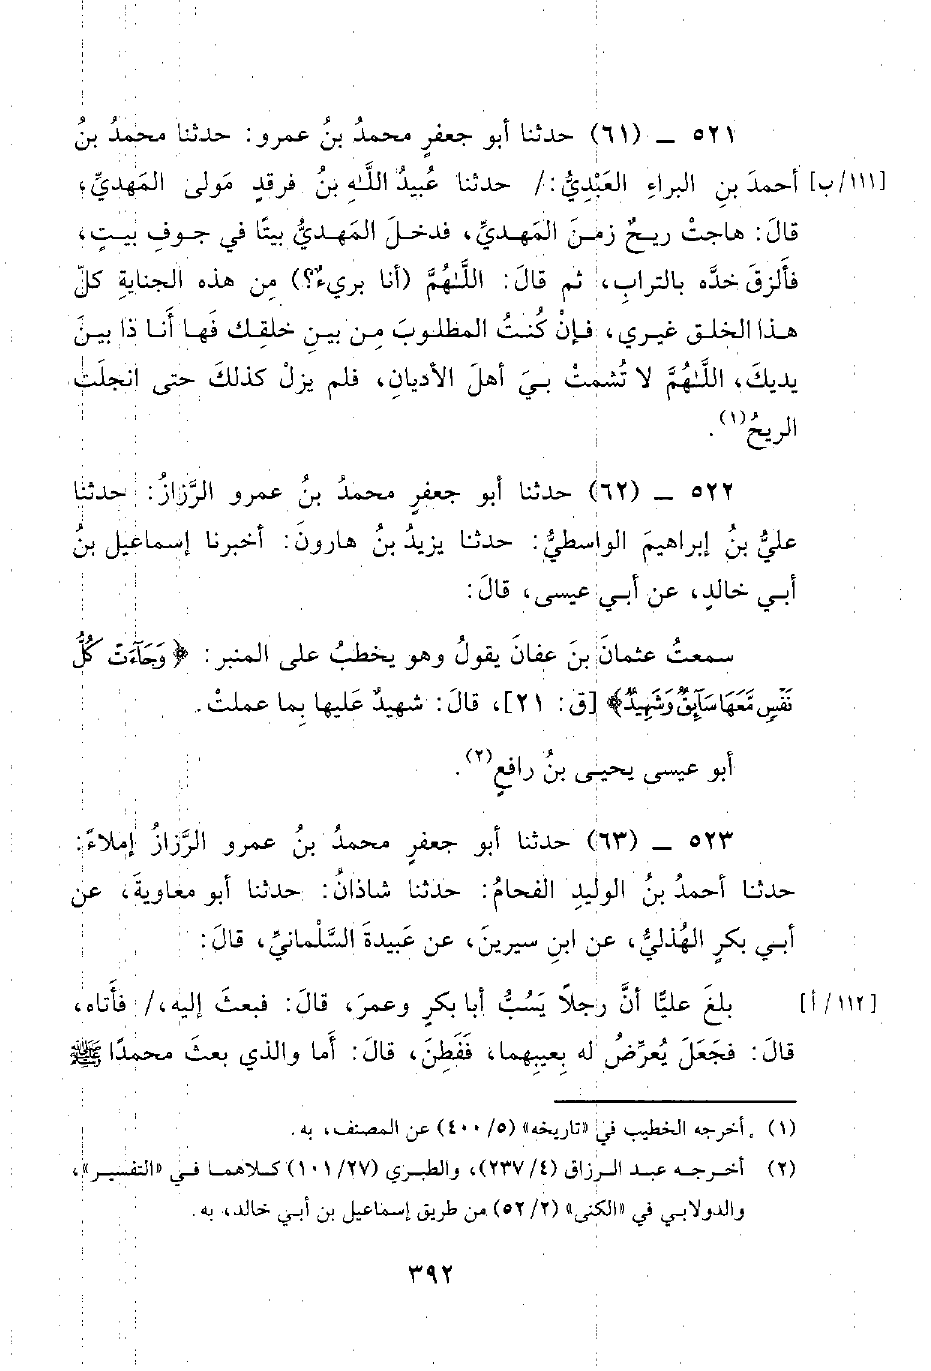 ٥٢١ ـ (٦١) حدثنا أبو جعفرٍ محمدُ بنُ عمرو: حدثنا محمدُ بنُ
[١١١/ب] أحمدَ بنِ البراءِ العَبْدِيُّ:/ حدثنا عُبيدُ اللَّهِ بنُ فرقدٍ مَولى المَهديِّ،
قالَ: هاجتْ ريحٌ زمنَ المَهديِّ، فدخلَ المَهديُّ بيتًا في جوفِ بيتٍ،
فألزقَ خدَّه بالترابِ، ثم قالَ: اللَّهُمَّ (أنا بريءٌ؟) مِن هذه الجنايةِ كلّ
هذا الخلق غيري، فإنْ كُنتُ المطلوبَ مِن بينِ خلقِك فَها أَنا ذا بينَ
يديكَ، اللَّهُمَّ لا تُشمتْ بيَ أهلَ الأديانِ، فلم يزلْ كذلكَ حتى انجلَت
الريحُ(١).
٥٢٢ ـ (٦٢) حدثنا أبو جعفرٍ محمدُ بنُ عمرو الرَّزازُ: حدثنا
عليُّ بنُ إبراهيمَ الواسطيُّ: حدثنا يزيدُ بنُ هارونَ: أخبرنا إسماعيل بنُ
أبي خالدٍ، عن أبي عيسى، قالَ:
سمعتُ عثمانَ بنَ عفانَ يقولُ وهو يخطبُ على المنبرِ: ﴿وَجَآءَتْ كُلُّ
نَفْسٍ مَّعَهَا سَآئِقٌ وَشَهِيدٌ﴾ [ق: ٢١]، قالَ: شهيدٌ عَليها بِما عملتْ.
أبو عيسى يحيى بنُ رافعٍ(٢).
٥٢٣ ـ (٦٣) حدثنا أبو جعفرٍ محمدُ بنُ عمرو الرَّزازُ إملاءً:
حدثنا أحمدُ بنُ الوليدِ الفحامُ: حدثنا شاذانُ: حدثنا أبو معاويةَ، عن
أبي بكرٍ الهُذليُّ، عن ابنِ سيرينَ، عن عَبيدةَ السَّلْمانيِّ، قالَ:
[١١٢/أ] بلغَ عليًّا أنَّ رجلًا يَسُبُّ أبا بكرٍ وعمرَ، قالَ: فبعثَ إليه،/ فأَتاه،
قالَ: فجَعَلَ يُعرِّضُ له بِعيبِهما، فَفَطِنَ، قالَ: أَما والذي بعثَ محمدًا ﷺ
(١) أخرجه الخطيب في «تاريخه» (٥/٤٠٠) عن المصنف، به.
(٢) أخرجه عبد الرزاق (٤/٢٣٧)، والطبري (٢٧/١٠١) كلاهما في «التفسير»،
والدولابي في «الكنى» (٢/٥٢) من طريق إسماعيل بن أبي خالد، به.
٣٩٢